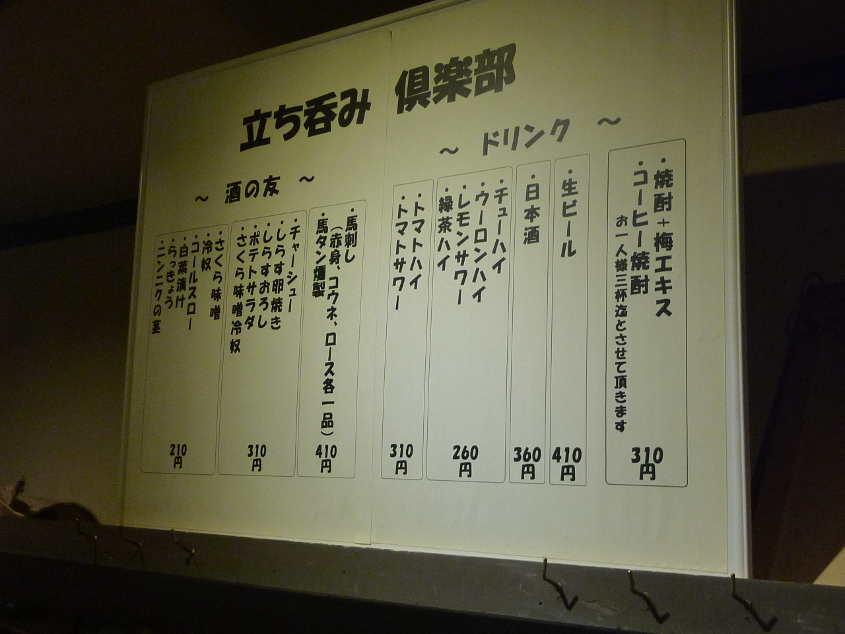 立ち呑み 倶楽部
～ ドリンク ～
・焼酎+梅エキス
・コーヒー焼酎
お一人様三杯迄とさせて頂きます
310円
・生ビール
410円
・日本酒
360円
・チューハイ
・ウーロンハイ
・レモンサワー
・緑茶ハイ
260円
・トマトハイ
・トマトサワー
310円
～ 酒の友 ～
・馬刺し
(赤身、コウネ、ロース各一品)
・馬タン燻製
410円
・チャーシュー
・しらす卵焼き
・しらすおろし
・ポテトサラダ
・さくら味噌冷奴
310円
・さくら味噌
・冷奴
・コールスロー
・白菜漬け
・らっきょう
・ニンニクの茎
210円